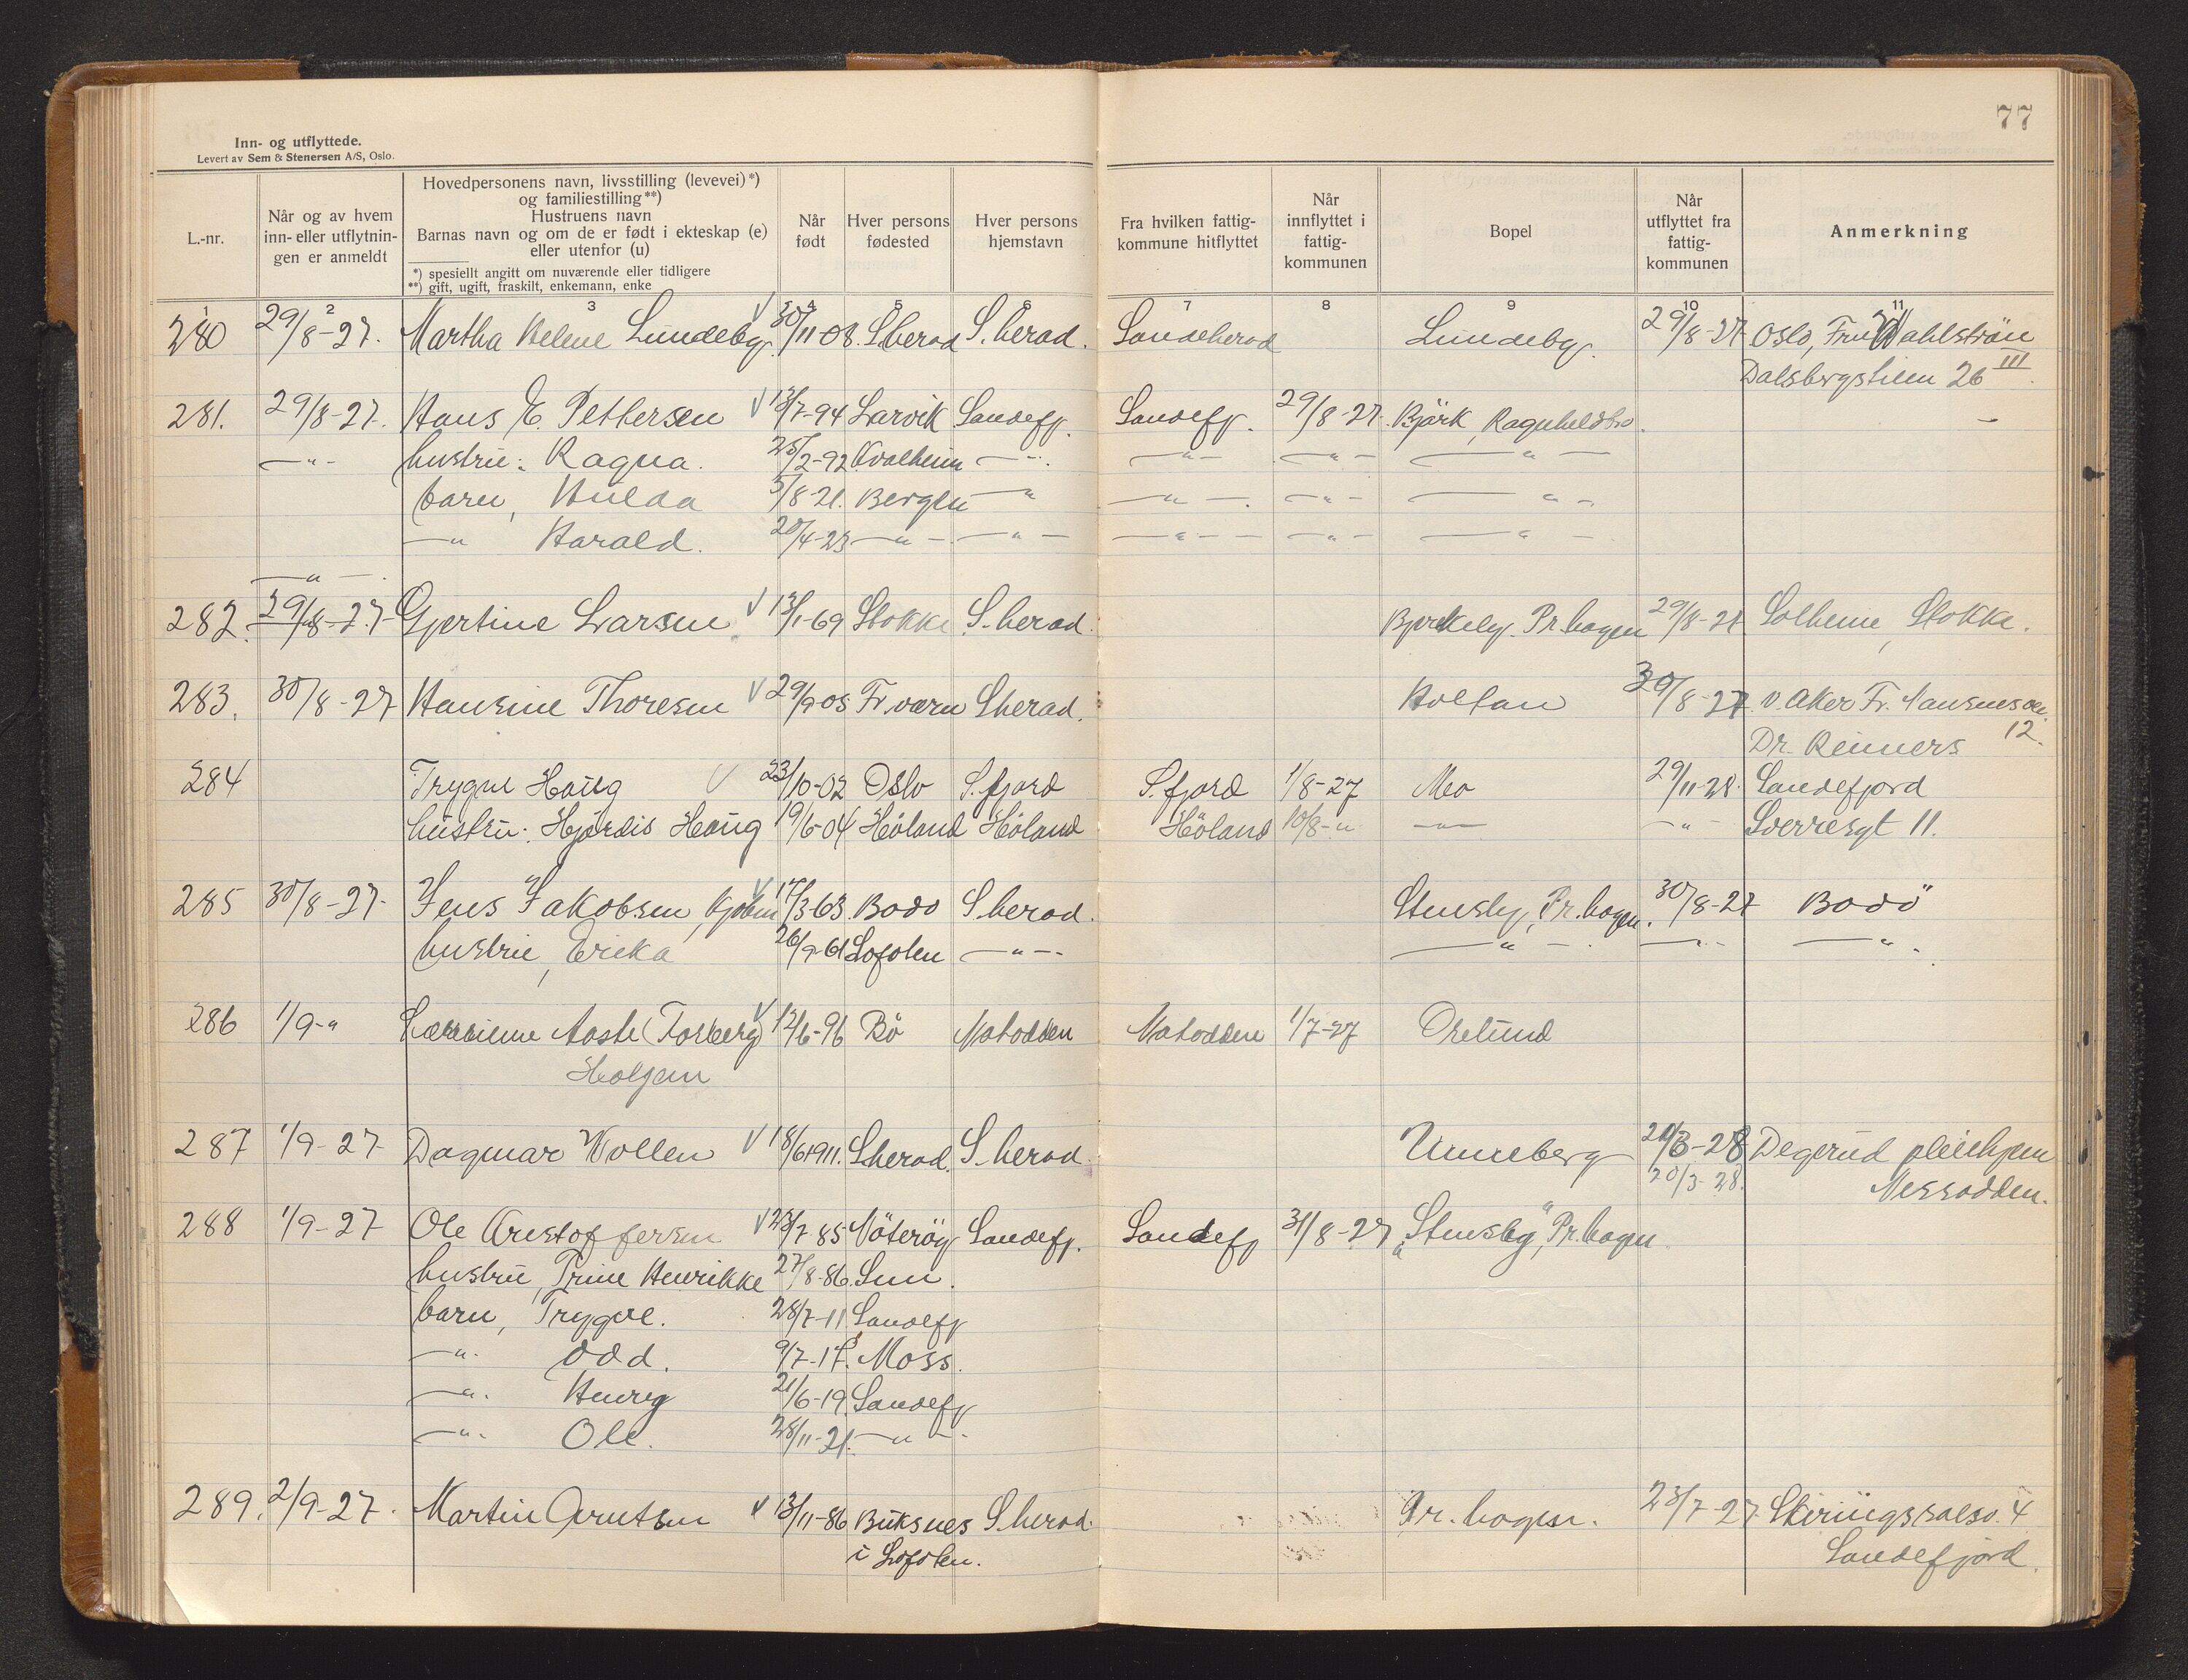 77
Inn- og utflyttede.
Levert av Sem & Stenersen A/S, Oslo.
L.-nr.
Når og av hvem inn- eller utflytnin- gen er anmeldt
Hovedpersonens navn, livsstilling (levevei)*)
og familiestilling**)
Hustruens navn
Barnas navn og om de er født i ekteskap (e)
eller utenfor (u)
*) spesielt angitt om nuværende eller tidligere
**) gift, ugift, fraskilt, enkemann, enke
Når født
Hver persons fødested
Hver persons hjemstavn
Fra hvilken fattig- kommune hitflyttet
Når innflyttet i fattig- kommunen
Bopel
Når utflyttet fra fattig- kommunen
Anmerkning
1 2 3 4 5 6 7 8 9 10 11
280 29/8-27. Martha Helene Lundeby 30/11-08. S.herad S.herad. Sandeherad Lundeby. 29/8-27 Oslo, Fru Wahlström
Dalsbergstien 26 III.
281. 29/8-27. Hans E. Pettersen 13/7-94 Larvik Sandefj. Sandefj. 29/8-27. Björk, Ragnhildbo. -
-"- hustru: Ragna. 25/2-92 Kvalheim -"- -"- -"- -"-
barn, Hulda 5/8-21. Bergen -"- -"- -"- -"-
-"- Harald. 20/4-23 -"- -"- -"- -"- -"-
-"-
282. 29/8-27 Gjertine Larsen 13/1-69 Stokke S.herad. Bjerkely. Pr.hagen 29/8-27 Solheim, Stokke.
283. 30/8-27 Hansine Thoresen 29/9-05 Fr.værn S.herad. Holtan 30/8-27 v. Aker Fr. Nansens vei
Dr. Reimers 12.
284 Trygve Haug 23/10-02 Oslo S.fjord S.fjord 1/8-27 Mo 29/11-28. Sandefjord
hustru: Hjørdis Haug 19/6-04 Höland Höland Höland 10/8-" -"- -"- Sverresgt 11.
285 30/8-27. Jens Jakobsen, Kjøbm 17/3-63. Bodo S.herad. Stensby, Pr.hagen. 30/8-27 Bodö
hustru, Erika 26/9-61 Lofoten -"- -"- -"- -"-
286 1/9-" Lærerinne Aaste (Torberg) 12/6-96 Bö Notodden Notodden 1/7-27 Orelund
Holjem
287 1/9-27 Dagmar Wollen 18/6 1911. S.herad. S.herad. Unneberg 21/3-28 Degerud pleiehjem
20/3-28. Nesodden.
288 1/9-27 Ole Cristoffersen 23/7 85 Nöteröy Sandefj. Sandefj 31/8-27 "Stensby", Pr.hagen
hustru, Trine Henrikke 27/8-86. Sem.
barn, Trygve. 28/7-11 Sandefj
-"- Odd. 9/7-17. Moss.
-"- Henry 21/6-19. Sandefj
-"- Ole. 28/11-21. -"-
289. 2/9-27. Martin Arntsen 13/11-86 Buksnes S.herad. Pr.hagen. 23/7-27 Skiringssalsv. 4
i Lofoten. Sandefjord.